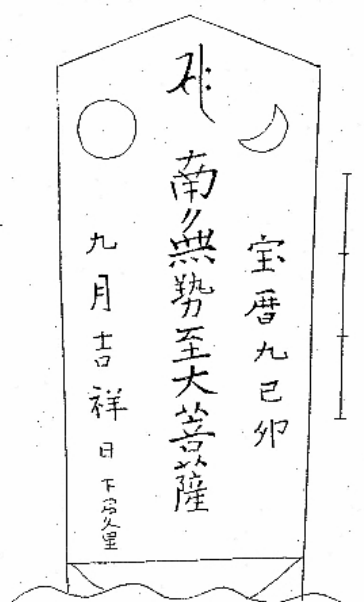 宝暦九己卯
南無勢至大菩薩
九月吉祥日